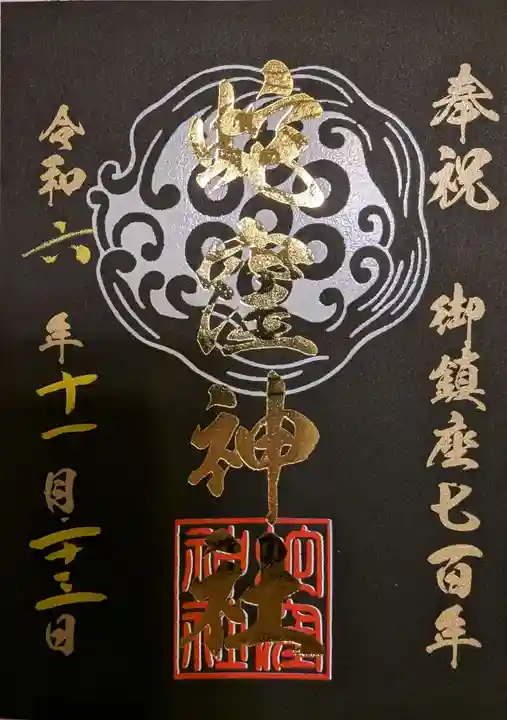 奉祝 御鎮座七百年
蛇窪神社
蛇窪神社
令和六年十一月二十三日